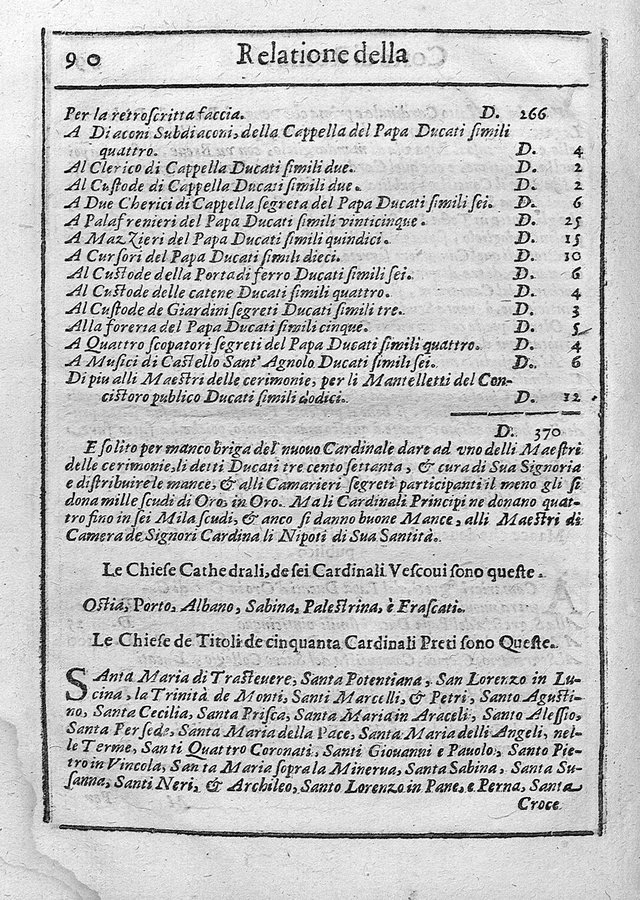 90 Relatione della
Per la retroſcritta faccia. D. 266
A Diaconi Subdiaconi, della Cappella del Papa Ducati ſimili
quattro. D. 4
Al Clerico di Cappella Ducati ſimili due. D. 2
Al Cuſtode di Cappella Ducati ſimili due. D. 2
A Due Cherici di Cappella ſegreta del Papa Ducati ſimili ſei. D. 6
A Palafrenieri del Papa Ducati ſimili vinticinque. D. 25
A Mazzieri del Papa Ducati ſimili quindici. D. 15
A Curſori del Papa Ducati ſimili dieci. D. 10
Al Cuſtode della Porta di ferro Ducati ſimili ſei. D. 6
Al Cuſtode delle catene Ducati ſimili quattro. D. 4
Al Cuſtode de Giardini ſegreti Ducati ſimili tre. D. 3
Alla foreria del Papa Ducati ſimili cinque. D. 5
A Quattro ſcopatori ſegreti del Papa Ducati ſimili quattro. D. 4
A Muſici di Caſtello Sant' Agnolo Ducati ſimili ſei. D. 6
Di piu alli Maeſtri delle cerimonie, per li Mantelletti del Con-
ciſtoro publico Ducati ſimili dodici. D. 12
D. 370
E ſolito per manco briga del nuouo Cardinale dare ad vno delli Maeſtri
delle cerimonie, li detti Ducati tre cento ſettanta, & cura di Sua Signoria
e diſtribuire le mance, & alli Camarieri ſegreti participanti il meno gli ſi
dona mille ſcudi di Oro, in Oro. Ma li Cardinali Principi ne donano quat-
tro fino in ſei Mila ſcudi, & anco ſi danno buone Mance, alli Maeſtri di
Camera de Signori Cardinali Nipoti di Sua Santità.
Le Chieſe Cathedrali, de ſei Cardinali Veſcoui ſono queſte.
Oſtia, Porto, Albano, Sabina, Paleſtrina, è Fraſcati.
Le Chieſe de Titoli de cinquanta Cardinali Preti ſono Queſte.
SAnta Maria di Traſteuere, Santa Potentiana, San Lorenzo in Lu-
cina, la Trinità de Monti, Santi Marcelli, & Petri, Santo Aguſti-
no, Santa Cecilia, Santa Priſca, Santa Maria in Araceli, Santo Aleſſio,
Santa Perſede, Santa Maria della Pace, Santa Maria delli Angeli, nel-
le Terme, Santi Quattro Coronati, Santi Giouanni e Pauolo, Santo Pie-
tro in Vincola, Santa Maria ſopra la Minerua, Santa Sabina, Santa Su-
ſanna, Santi Neri, & Archileo, Santo Lorenzo in Pane, e Perna, Santa
Croce